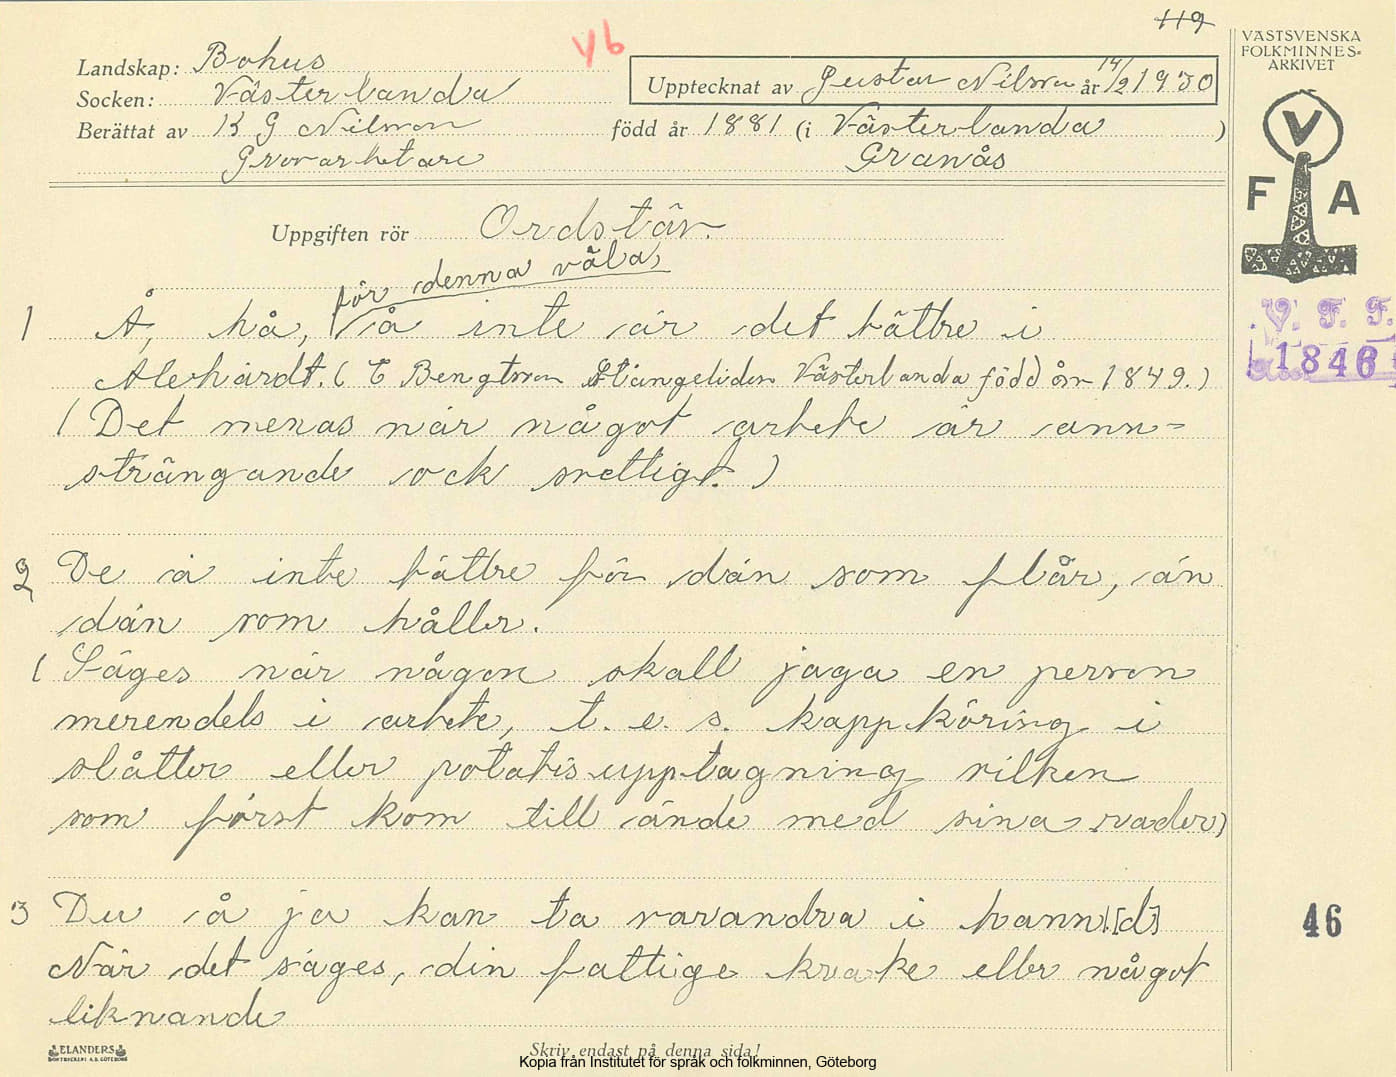 119
VÄSTSVENSKA
FOLKMINNES=
ARKIVET
Landskap: Bohus
y6
Socken: Västerlanda
Upptecknat av Gustav Nilson år 14/2 1930
Berättat av K G Nilsson född år 1881 (i Västerlanda )
Grovarbetare Granås
V
F A
Uppgiften rör Ordstäv.
för denna våla,
1 Å, hå, så inte är det bättre i
Alehärdt. ( E Bengtsson Stängeliden Västerlanda född år 1849.)
V. F. F.
1846
( Det menas när något arbete är ann=
strängande ock svettigt. )
2 De ä inte bättre för dän som flår, än
dän som håller.
( Säges när någon skall jaga en person
merendels i arbete, t. e. s. kappköring i
slåtter eller potatisupptagning vilken
som först kom till ände med sina rader)
3 Du å ja kan ta varandra i hann![d]
46
När det säges, din fattige krake eller något
liknande
ELANDERS
BOKTRYCKERI A.B. GÖTEBORG
Skriv endast på denna sida!
Kopia från Institutet för språk och folkminnen, Göteborg